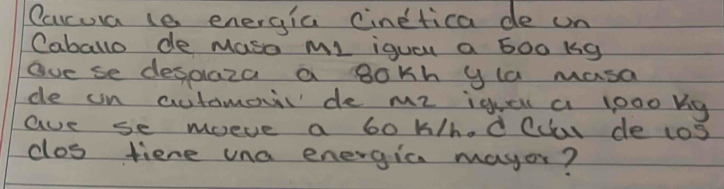 Calcula la energía Cinética de un
Caballo de Masa M1 igual a 500 Kg
Que se desplaza a 80 Kh y la masa
de un automovil de M2 igual a 1,000 Kg
que se mueve a 60 K/h. ¿Cuál de los
dos tiene una energía mayor?